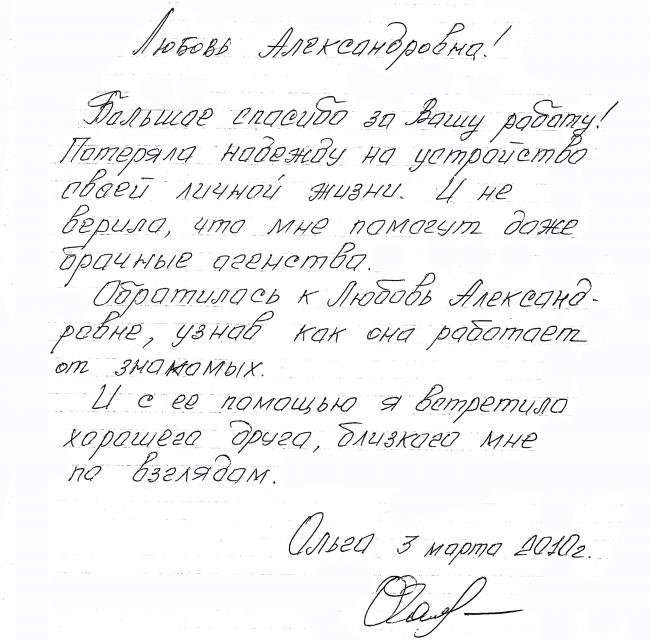 Любовь Александровна!
Большое спасибо за Вашу работу!
Потеряла надежду на устройство
своей личной жизни. И не
верила, что мне помогут даже
брачные агенства.
Обратилась к Любовь Александ-
ровне, узнав как она работает
от знакомых.
И с ее помощью я встретила
хорошего друга, близкого мне
по взглядам.
Ольга 3 марта 2010г.